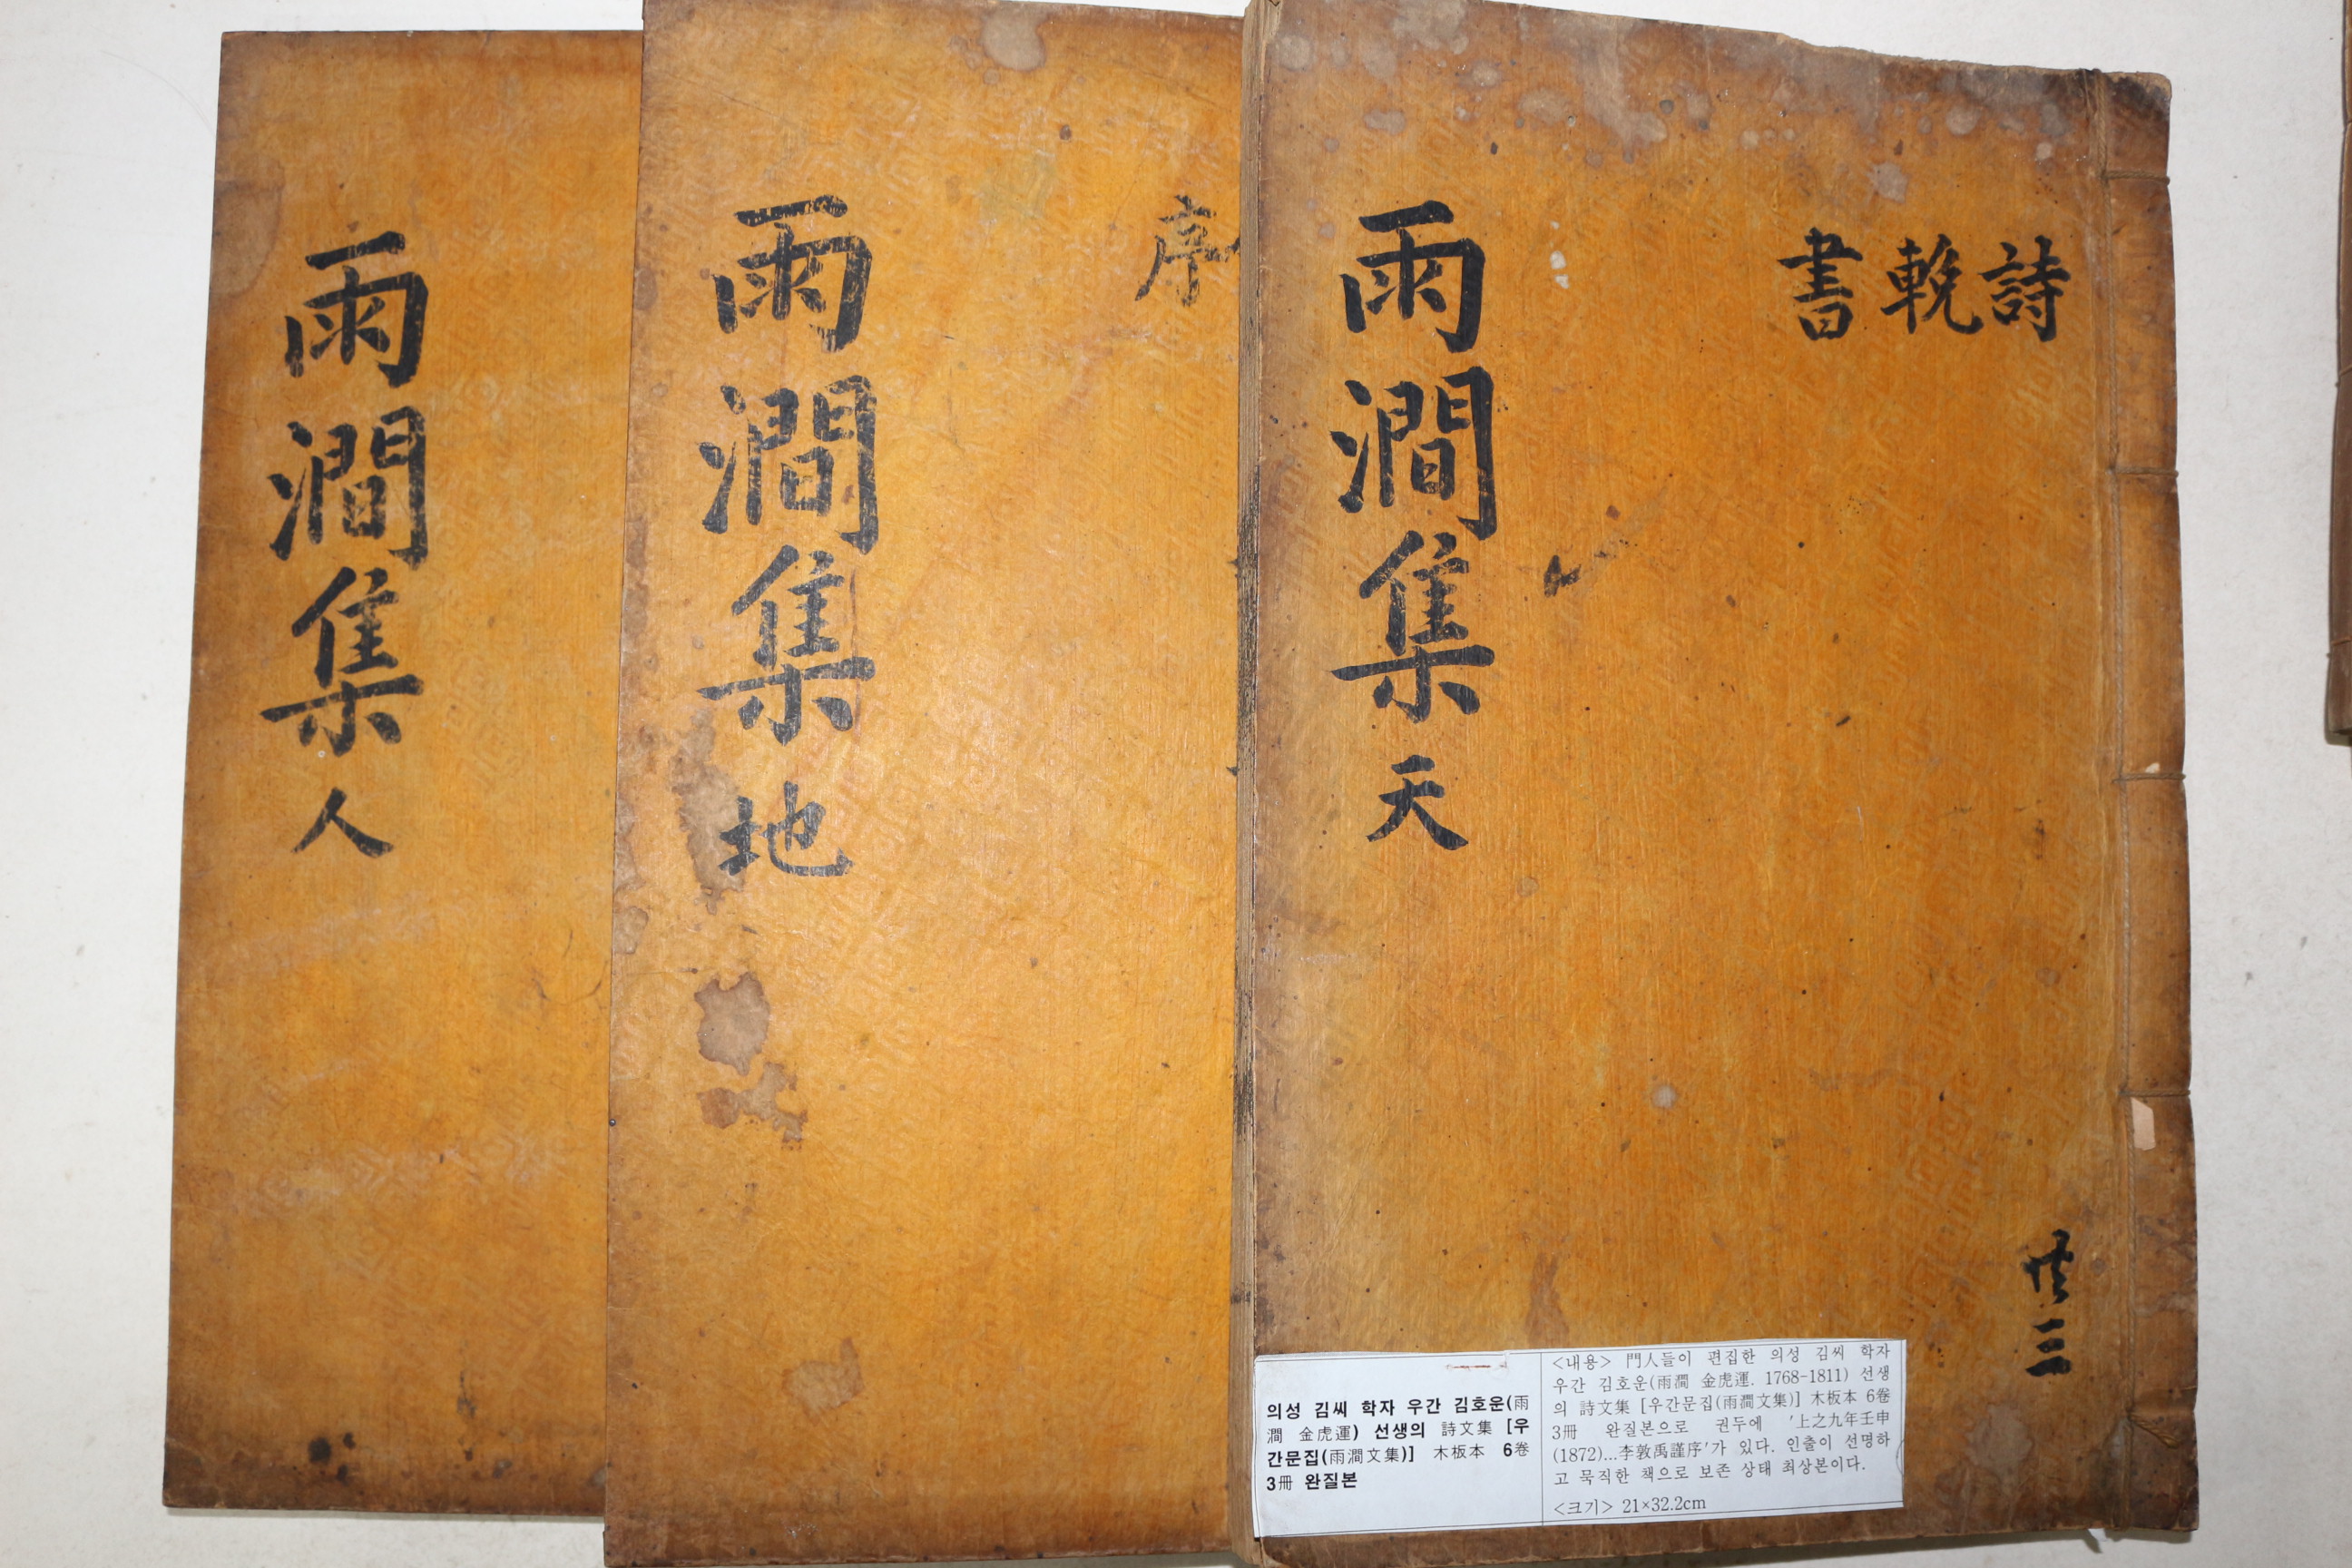 雨澗集人
雨澗集地
序
雨澗集天
詩
輓
書
共三
의성 김씨 학자 우간 김호운(雨
澗 金虎運) 선생의 詩文集 [우
간문집(雨澗文集)] 木板本 6卷
3冊 완질본
<내용> 門人들이 편집한 의성 김씨 학자
우간 김호운(雨澗 金虎運. 1768-1811) 선생
의 詩文集 [우간문집(雨澗文集)] 木板本 6卷
3冊 완질본으로 권두에 '上之九年壬申
(1872)...李敦禹謹序'가 있다. 인출이 선명하
고 묵직한 책으로 보존 상태 최상본이다.
<크기> 21×32.2cm